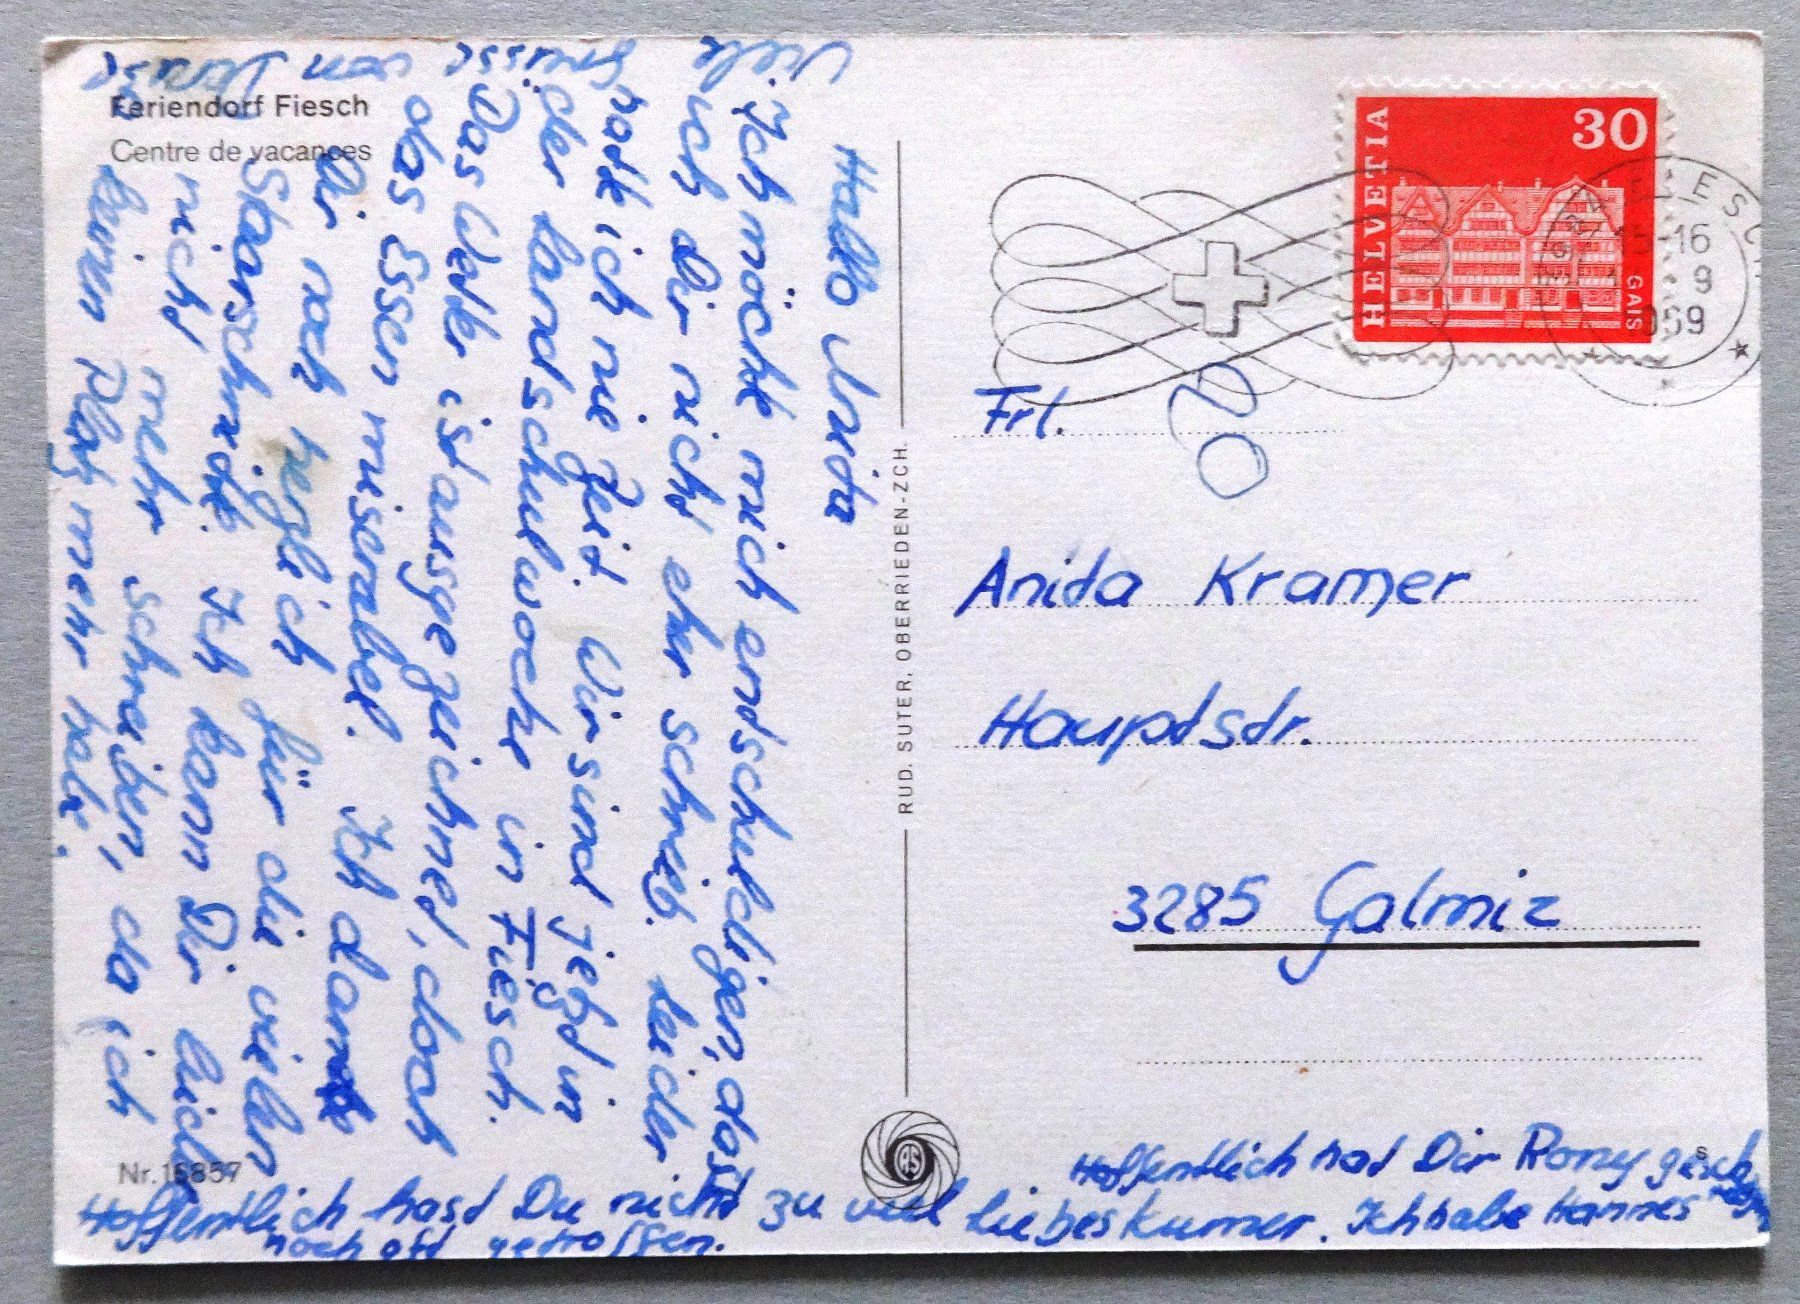 Feriendorf Fiesch
Centre de vacances
Hallo Anita
Ich möchte mich entschuldigen, dass
ich Dir nicht eher schrieb. Leider
hatte ich nie Zeit. Wir sind jetzt in
der Landschulwoche in Fiesch.
Das Wetter ist ausgezeichnet, doch
das Essen miserabel. Ich danke
Dir noch herzlich für die vielen
Ich kann Dir leider
nicht mehr schreiben, da ich
keinen Platz mehr habe.
Viele
Grüsse
von
Nr. 15857
Hoffentlich hast Du nicht zu viel Liebeskumer. Ich habe Hannes
noch oft getroffen.
Hoffentlich hat Dir Romy
RUD. SUTER, OBERRIEDEN-ZCH.
RS
HELVETIA
30
GAIS
-16
9
Frl.
20
Anita Kramer
Hauptstr.
3285 Galmiz
S